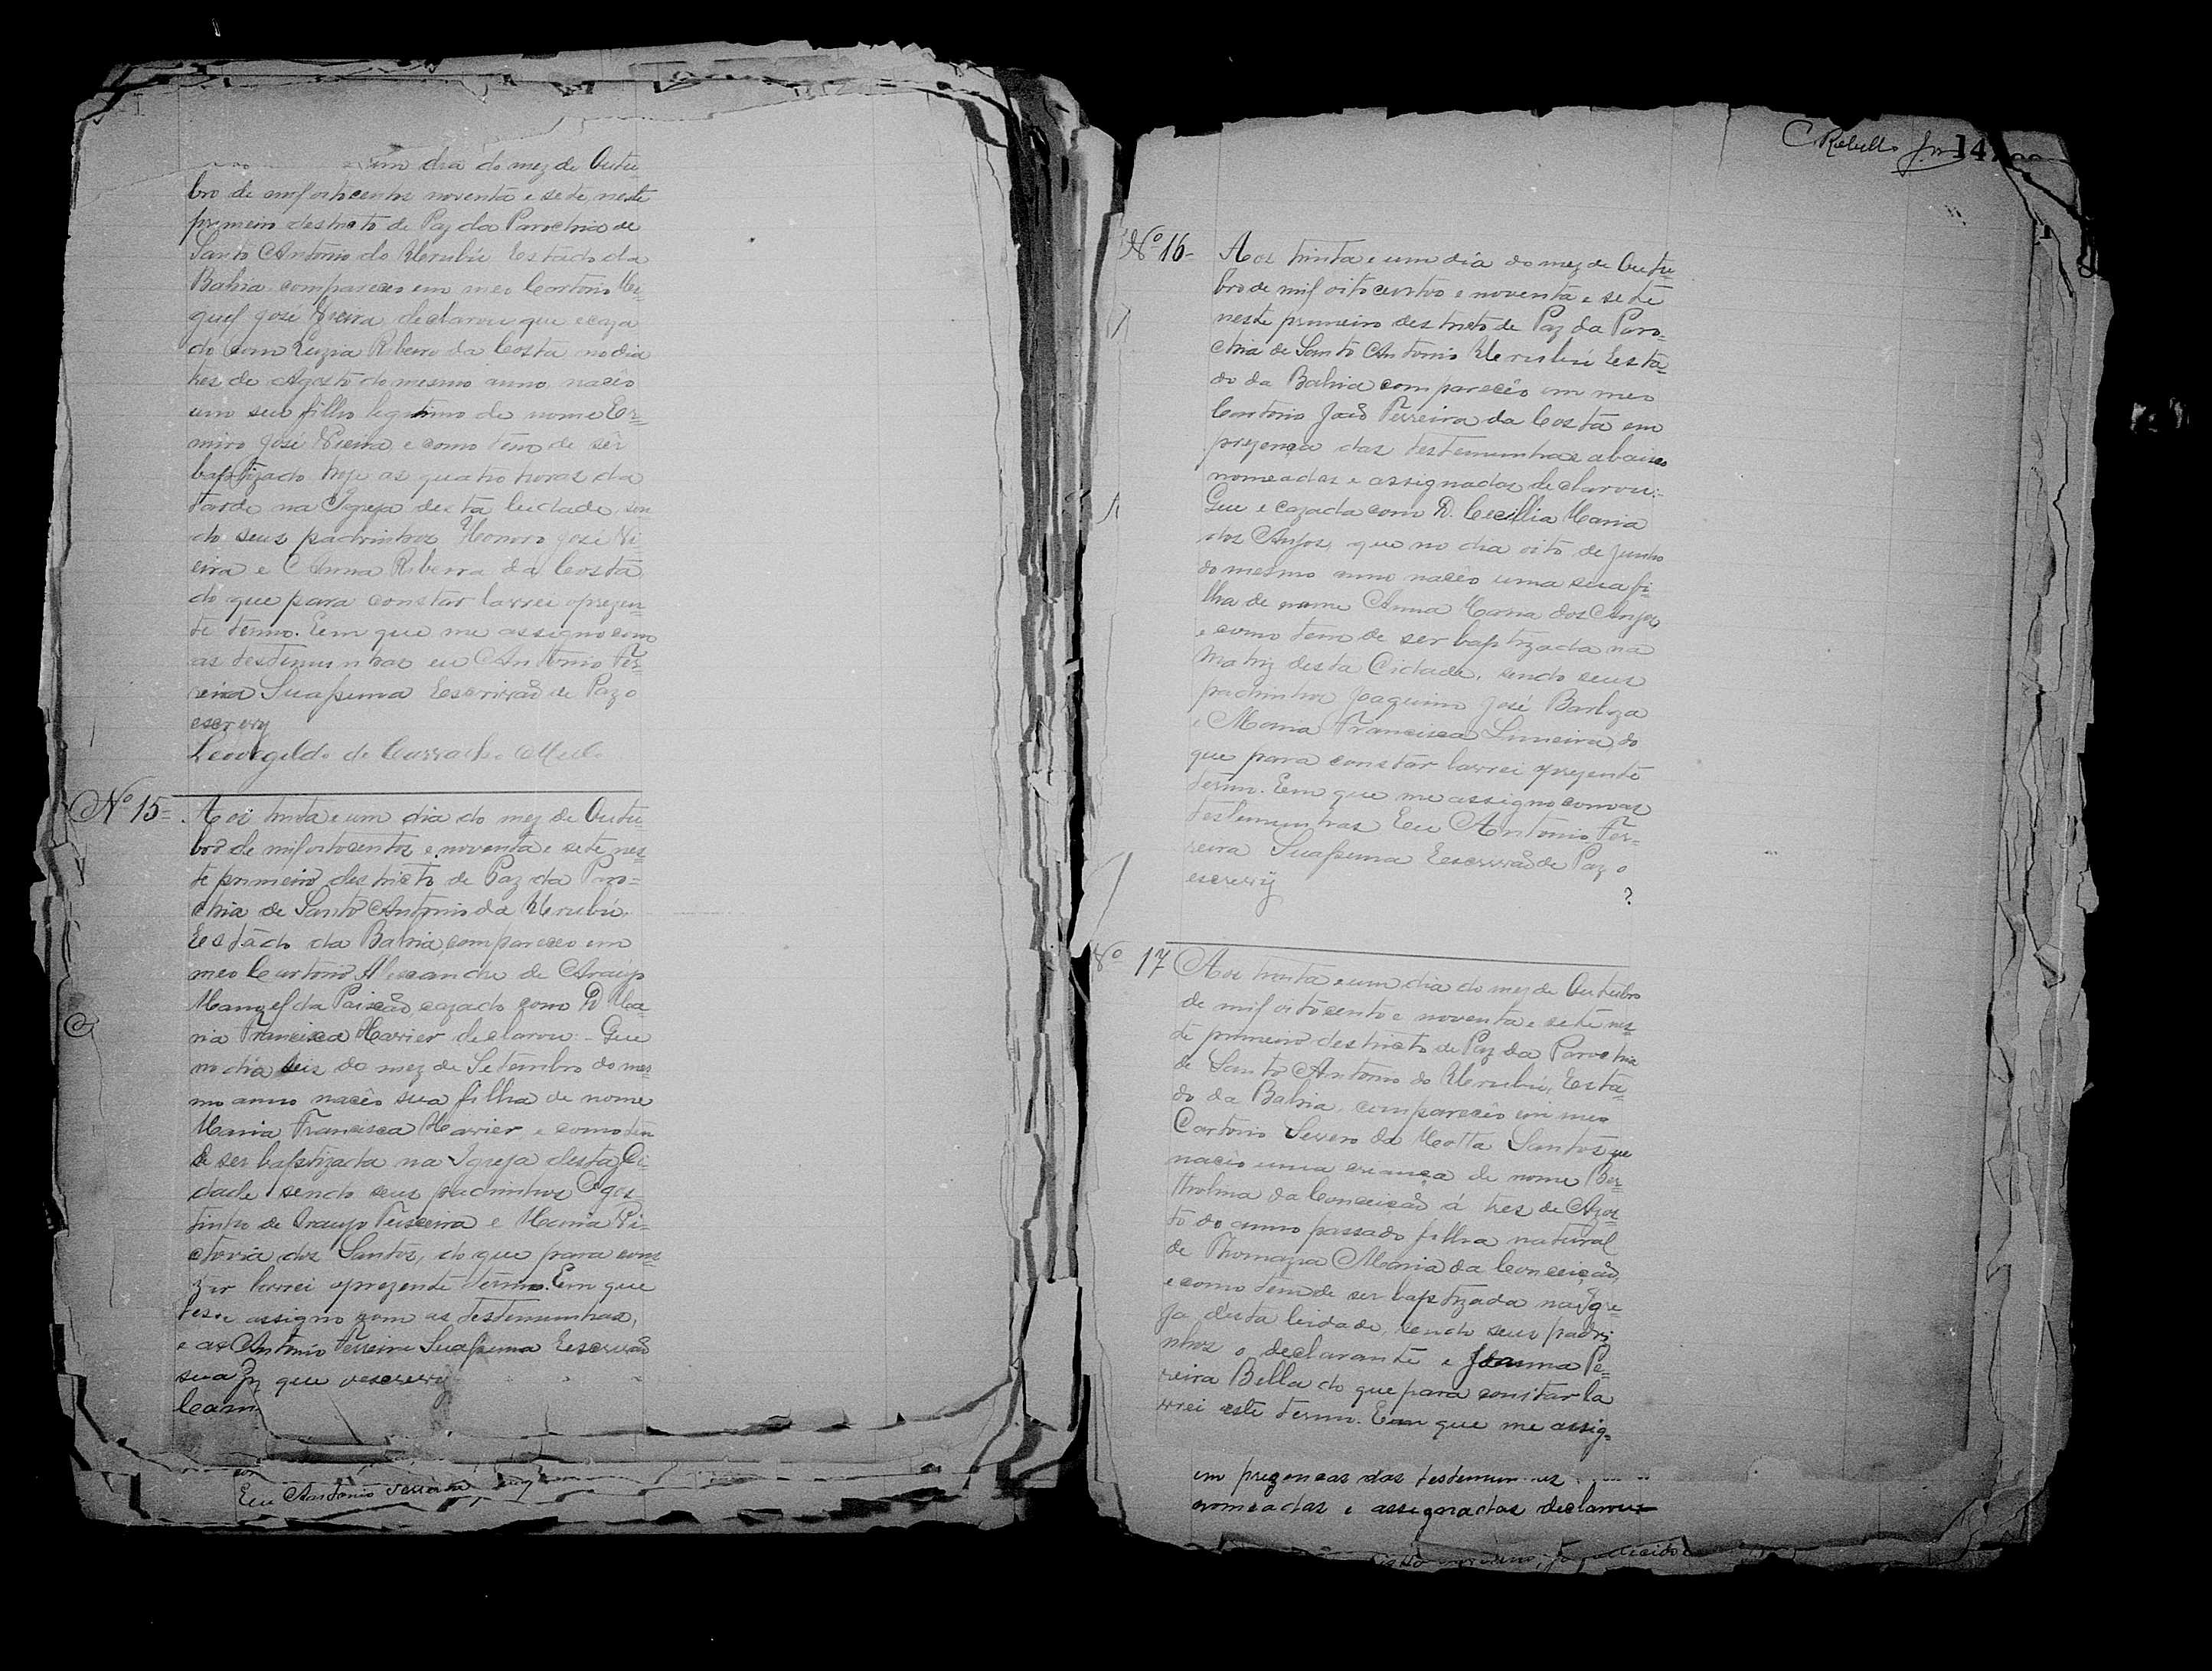 um dia do mez de Outu-
bro de mil oitocentos noventa e sete, neste
primeiro destricto de Paz da Parochia de
Santo Antonio do Urubú Estado da
Bahia compareceo em meo Cartorio Mi-
guel José Vieira, declarou que e caza
do com Luzia Ribeiro da Costa no dia
tres de Agosto do mesmo anno, naceo
um seu filho legitimo de nome Er-
miro José Vieira, e como tem de sêr
baptizado hoje as quatro horas da
tarde na Igreja desta Cidade, sen
do seus padrinhos Honoro José Vi-
eira e Anna Ribeira da Costa
do que para constar lavrei o prezen-
te termo. Eem que me assigno com
as testemunhas eu Antonio Fer-
reira Suassuna Escrivaõ de Paz o
escrevy
Leovegildo de
Nº 15= Aos trinta e um dia do mez de Outu-
bro de mil oitocentos e noventa e sete nes-
te primeiro destricto de Paz da Paro=
chia de Santo Antonio da Urubú.
Estado da Bahia, compareceo em
meo Cartorio Alexandre de Araujo
Manoel da Paixaõ cazado com D Ma
ria Francisca Xavier declarou - Que
no dia seis do mez de Setembro do mes-
mo anno naceo sua filha de nome
Maria Francisca Xavier, e como tem
de ser baptizada na Igreja desta Ci-
dade sendo seus padrinhos Agos-
tinho de Araujo Teixeira e Maria Vi-
ctoria dos Santos, do que para cons-
lavrei o prezente termo. Em que
assigno com as testemunhas,
e as Antonio Ferreira Suassuna Escrivaõ
que o escrevy
Eeu Antonio Ferreira
C. Rebello 14
Nº 16- Aos trinta e um dia do mez de Outu-
bro de mil oitocentos e noventa e sete
neste primeiro destricto de Paz da Paro-
chia de Santo Antonio Urubú Esta-
do da Bahia compareceo em meo
Cartorio Joaõ Ferreira da Costa em
prezença das testemunhas abaixo
nomeadas e assignadas, declarou:-
Que e cazada com D. Cecillia Maria
dos Anjos, que no dia oito de Junho
do mesmo anno naceo uma sua fi-
lha de nome Anna Maria dos Anjos,
e como tem de ser baptizada na
Matriz desta Cidade, sendo seus
padrinhos Joaquim José Barboza
e Maria Francisca Limeira do
que para constar lavrei o prezente
termo. Eem que me assigno com as
testemunhas Eeu Antonio Fer-
reira Suassuna Eescrivaõ de Paz o
escrevy
?
Nº 17 Aos trinta e um dia do mez de Outubro
de mil oitocento e noventa e sete nes-
te primeiro destricto de Paz da Parochia
de Santo Antonio do Urubú, Esta-
do da Bahia, compareceo em meo
Cartorio Severo da Motta Santos que
naceo uma criança de nome Ber-
tholina da Conceiçaõ á tres de Agos-
to do anno passado filha natural
de Thomazia Maria da Conceiçaõ,
e como tem de ser baptizada na Igre
ja desta Cidade, sendo seus padri-
nhos o declarante e Joanna Pe-
reira Bella do que para constar la
vrei este termo. Eem que me assig-
em prezencas das testemunhas
nomeadas e assignadas declarou-